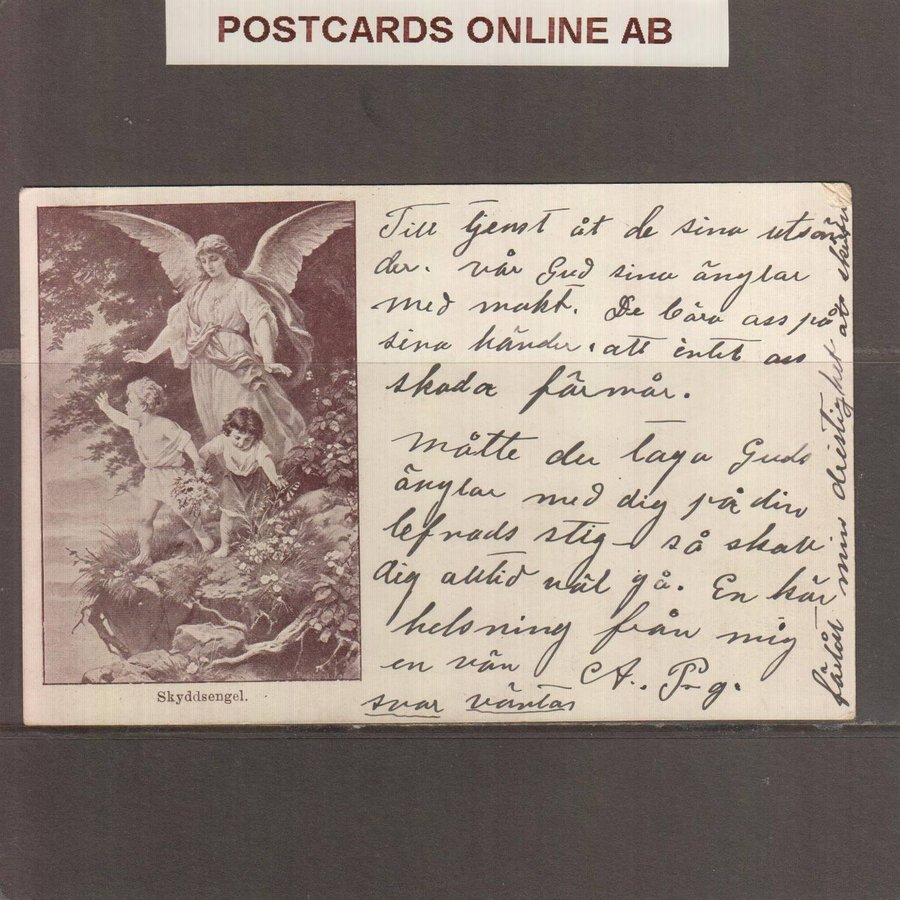 POSTCARDS ONLINE AB
Till tjenst åt de sina utsän
der. vår Gud sina änglar
med makt. De bära oss på
sina händer. att intet oss
skada förmår.
Måtte du taga Guds
änglar med dig på din
lefnads stig så skall
dig alltid väl gå. En kär
helsning från mig
en vän A. P-g.
svar väntas
förlåt min dristighet att skrifva
Skyddsengel.